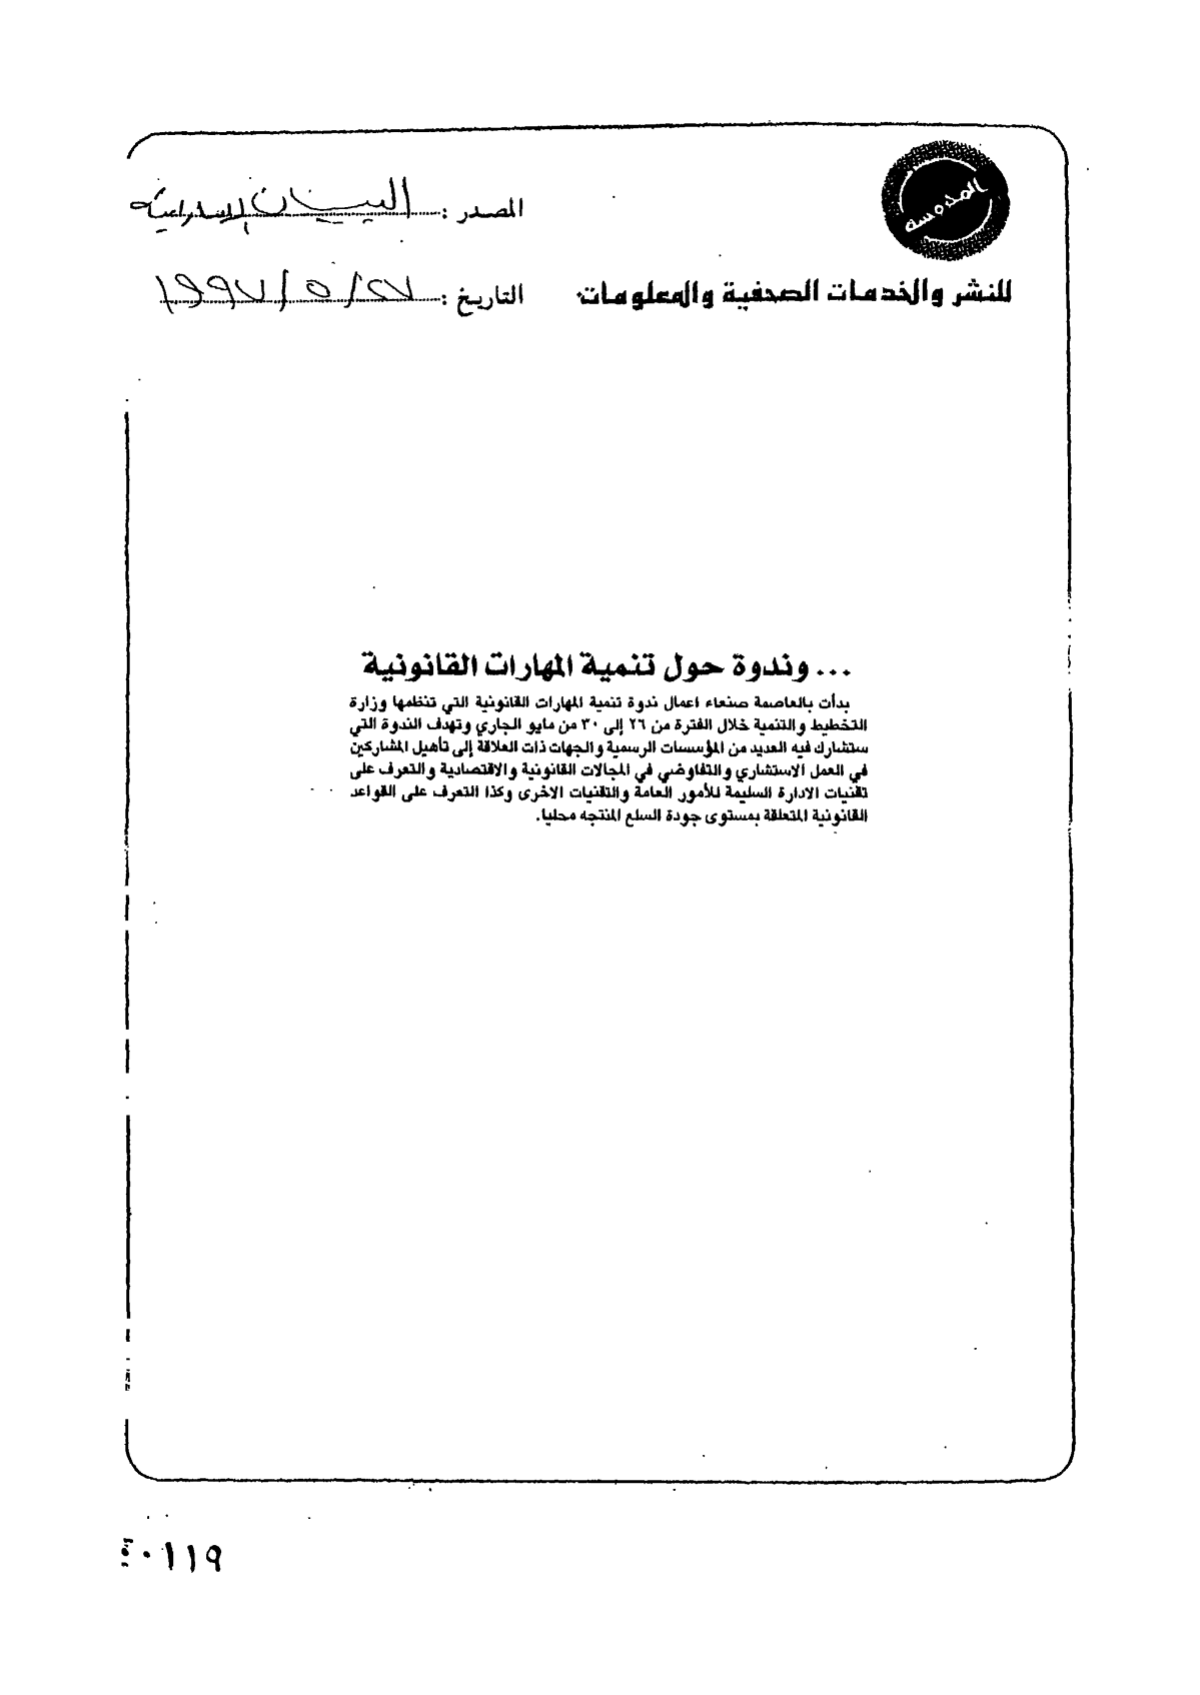 المدوسه
المصدر : البيان الإماراتية
للنشر والخدمات الصحفية والمعلومات
التاريخ : ٢٧ / ٥ / ١٩٩٧
... وندوة حول تنمية المهارات القانونية
بدأت بالعاصمة صنعاء اعمال ندوة تنمية المهارات القانونية التي تنظمها وزارة
التخطيط والتنمية خلال الفترة من ٢٦ إلى ٣٠ من مايو الجاري وتهدف الندوة التي
ستشارك فيه العديد من المؤسسات الرسمية والجهات ذات العلاقة إلى تأهيل المشاركين
في العمل الاستشاري والتفاوضي في المجالات القانونية والاقتصادية والتعرف على
تقنيات الادارة السليمة للأمور العامة والتقنيات الاخرى وكذا التعرف على القواعد
القانونية المتعلقة بمستوى جودة السلع المنتجه محليا.
٠١١٩